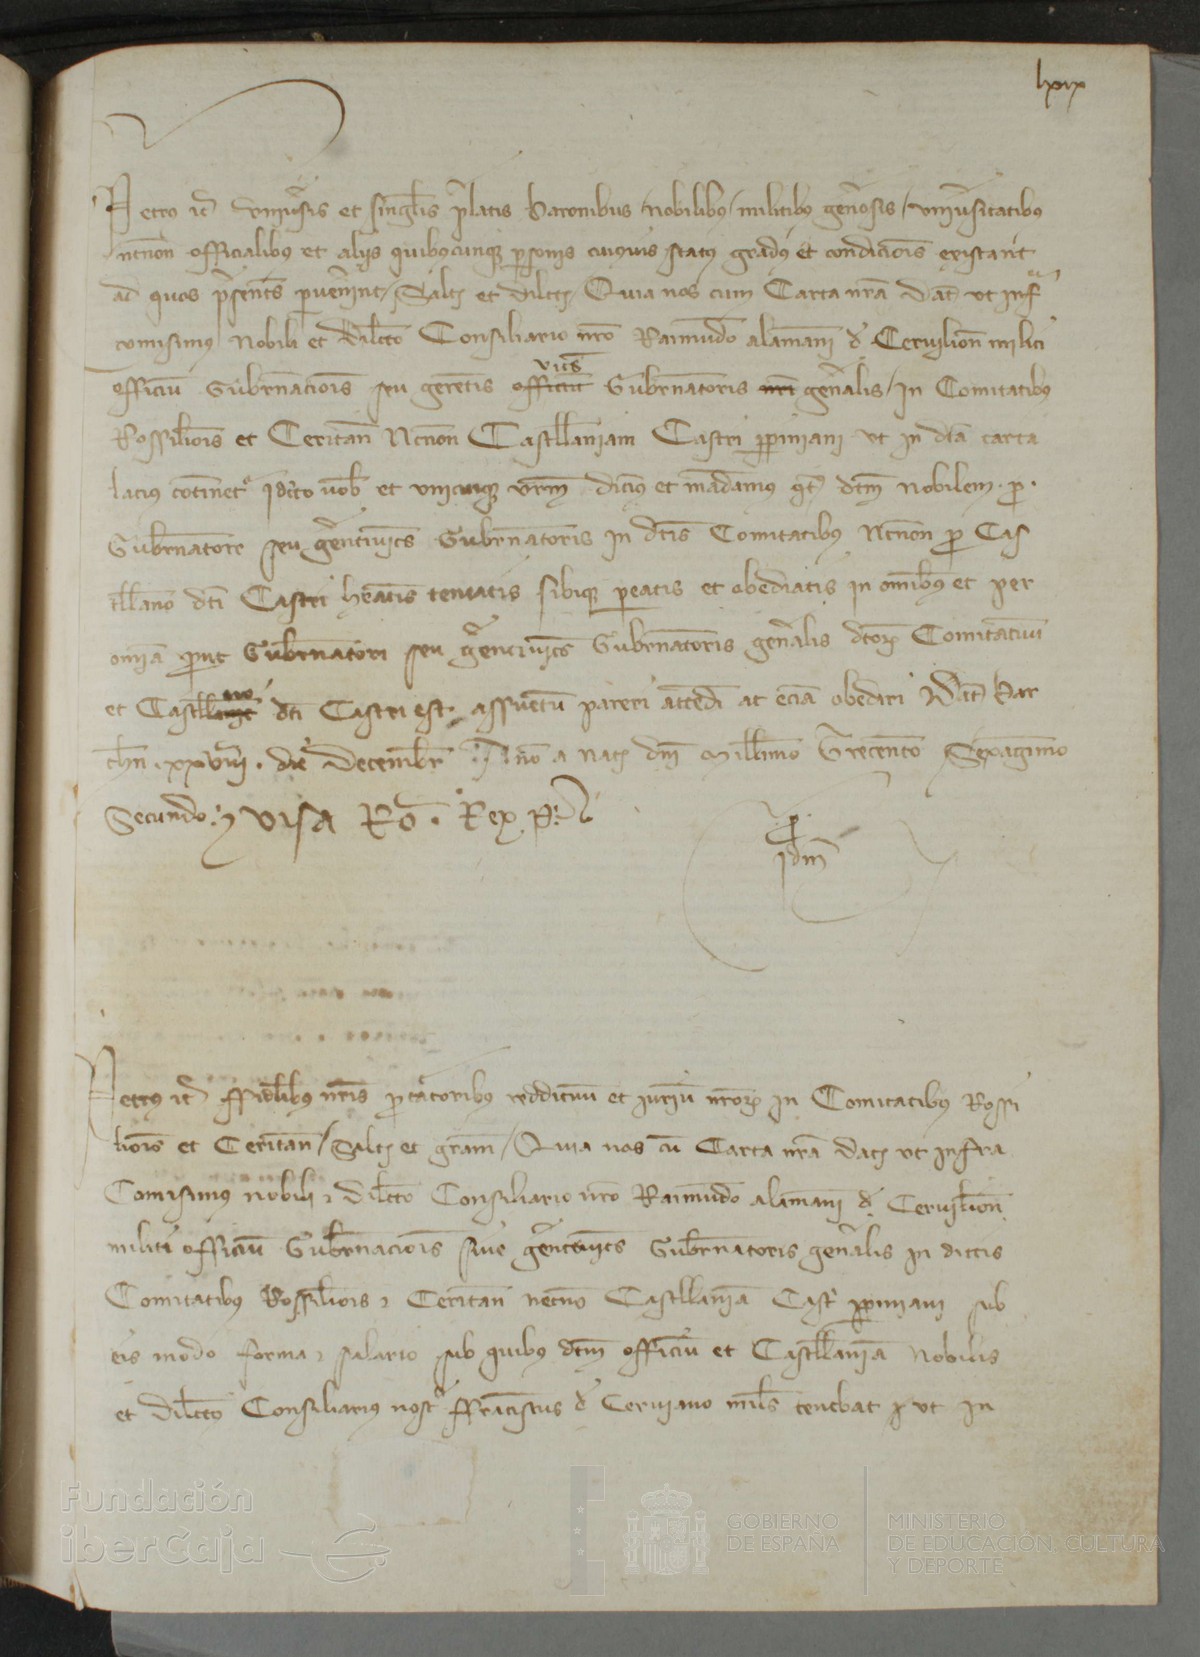 lxix
Petrus etc. universis et singulis prelatis baronibus nobilibus militibus generosis universitatibus
necnon officialibus et aliis quibuscunque personis cuiusvis status gradus et condicionis existant
ad quos presentes pervenerint Saltm et dilectm Quia nos cum Carta nra dat ut infra
comisimus nobili et dilcto Consiliario nro Raimundo alamani de Cervilion militi
officiu Gubrnacionis seu gerentis vices officiu Gubrnatoris nri genralis in Comitatibus
Rossilionis et Ceritan Necnon Castllaniam Castri ppiniani ut in dta carta
lacius cotinetr Idcirco vob et unicuique vrm dicimus et madamus qt dtm nobilem pro
Gubrnatore seu gerentivices Gubrnatoris in dtis Comitatibus Necnon pro Cas
tllano dti Castri heatis teneatis sibique pareatis et obediatis in omibus et per
omia prout Gubrnatori seu gerentivices Gubrnatoris genralis dtor Comitatuum
et Castllano dti Castri est assuetu pareri attedi ac ecia obediri Dat Bar
chn xxviii die Decembr Ano a nat dni Millimo Trecento Sexagimo
Secundo visa Ro Rex P
p
Idm
Petrus etc. ffidelibus nris ptatoribus reddituu et iuriu nror in Comitatibus Rossi
lionis et Ceritan Saltm et gram Quia nos cu Carta nra dat ut infra
Comisimus nobili et dilcto Consiliario nro Raimundo alamani de Cervilion
militi officiu Gubrnacionis sive gerentivices Gubrnatoris genralis in dictis
Comitatibus Rossilionis et Ceritan necno Castllania Cast ppiniani sub
eis modo forma et salario sub quibus dtm officiu et Castllania Nobilis
et dilcto Consiliarius nostr ffranciscus de Cerviano mils tenebat ut in
Fundación
iberCaja
GOBIERNO
DE ESPAÑA
MINISTERIO
DE EDUCACIÓN, CULTURA
Y DEPORTE